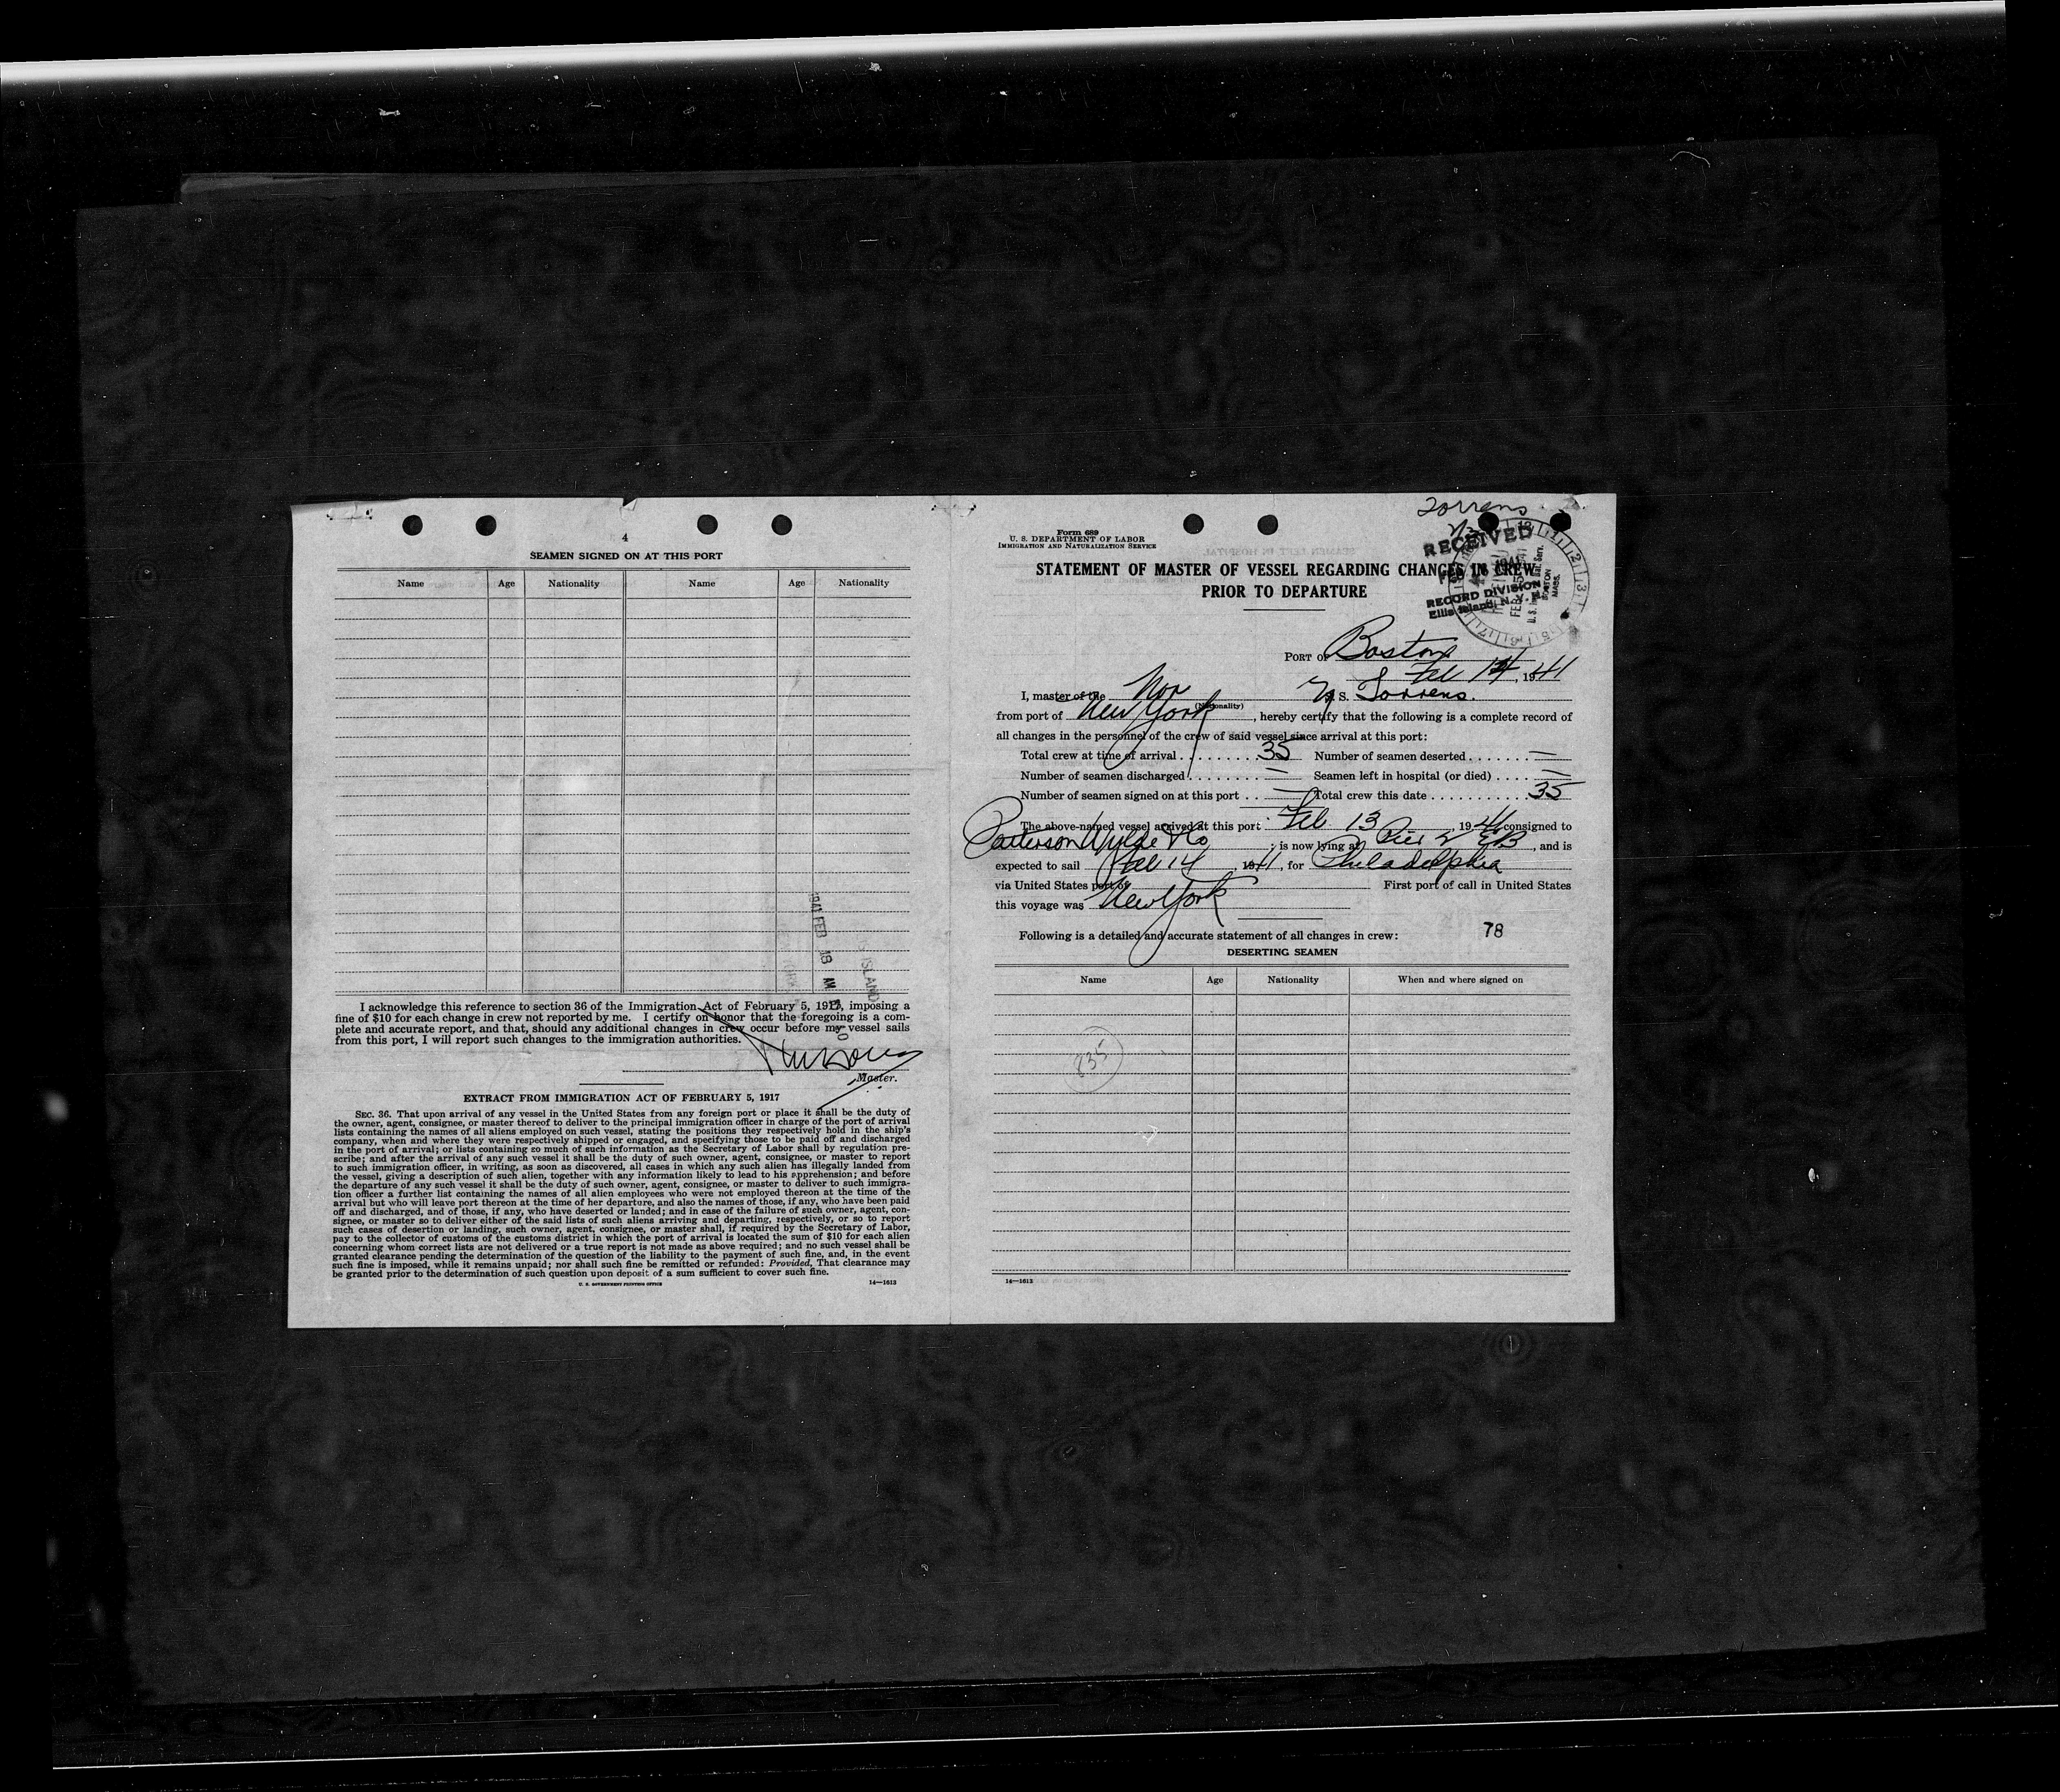 4
SEAMEN SIGNED ON AT THIS PORT
Name Age Nationality Name Age Nationality
1941 FEB 18 AM
ISLAND
I acknowledge this reference to section 36 of the Immigration Act of February 5, 1917, imposing a
fine of $10 for each change in crew not reported by me. I certify on honor that the foregoing is a com-
plete and accurate report, and that, should any additional changes in crew occur before my vessel sails
from this port, I will report such changes to the immigration authorities.
Master.
EXTRACT FROM IMMIGRATION ACT OF FEBRUARY 5, 1917
SEC. 36. That upon arrival of any vessel in the United States from any foreign port or place it shall be the duty of
the owner, agent, consignee, or master thereof to deliver to the principal immigration officer in charge of the port of arrival
lists containing the names of all aliens employed on such vessel, stating the positions they respectively hold in the ship's
company, when and where they were respectively shipped or engaged, and specifying those to be paid off and discharged
in the port of arrival; or lists containing so much of such information as the Secretary of Labor shall by regulation pre-
scribe; and after the arrival of any such vessel it shall be the duty of such owner, agent, consignee, or master to report
to such immigration officer, in writing, as soon as discovered, all cases in which any such alien has illegally landed from
the vessel, giving a description of such alien, together with any information likely to lead to his apprehension; and before
the departure of any such vessel it shall be the duty of such owner, agent, consignee, or master to deliver to such immigra-
tion officer a further list containing the names of all alien employees who were not employed thereon at the time of the
arrival but who will leave port thereon at the time of her departure, and also the names of those, if any, who have been paid
off and discharged, and of those, if any, who have deserted or landed; and in case of the failure of such owner, agent, con-
signee, or master so to deliver either of the said lists of such aliens arriving and departing, respectively, or so to report
such cases of desertion or landing, such owner, agent, consignee, or master shall, if required by the Secretary of Labor,
pay to the collector of customs of the customs district in which the port of arrival is located the sum of $10 for each alien
concerning whom correct lists are not delivered or a true report is not made as above required; and no such vessel shall be
granted clearance pending the determination of the question of the liability to the payment of such fine, and, in the event
such fine is imposed, while it remains unpaid; nor shall such fine be remitted or refunded: Provided, That clearance may
be granted prior to the determination of such question upon deposit of a sum sufficient to cover such fine.
U. S. GOVERNMENT PRINTING OFFICE 14—1613
Torrens
Form 689
U. S. DEPARTMENT OF LABOR
IMMIGRATION AND NATURALIZATION SERVICE
RECEIVED
RECORD DIVISION
Ellis Island, N. Y.
U. S. Im. & Nat. Serv.
BOSTON
MASS.
STATEMENT OF MASTER OF VESSEL REGARDING CHANGES IN CREW
PRIOR TO DEPARTURE
PORT OF Boston
Feb 14, 1941
I, master of the Nor M. S. Torrens.
(Nationality)
from port of New York, hereby certify that the following is a complete record of
all changes in the personnel of the crew of said vessel since arrival at this port:
Total crew at time of arrival . . . . . . . . . . 35 Number of seamen deserted . . . . . . . —
Number of seamen discharged . . . . . . . . — Seamen left in hospital (or died) . . . . —
Number of seamen signed on at this port . . — Total crew this date . . . . . . . . . . . 35
The above-named vessel arrived at this port Feb 13, 1941, consigned to
Patterson Wylde & Co; is now lying at Pier 2 EB, and is
expected to sail Feb 14, 1941, for Philadelphia
via United States port of First port of call in United States
this voyage was New York
Following is a detailed and accurate statement of all changes in crew: 78
DESERTING SEAMEN
Name Age Nationality When and where signed on
835
14—1613